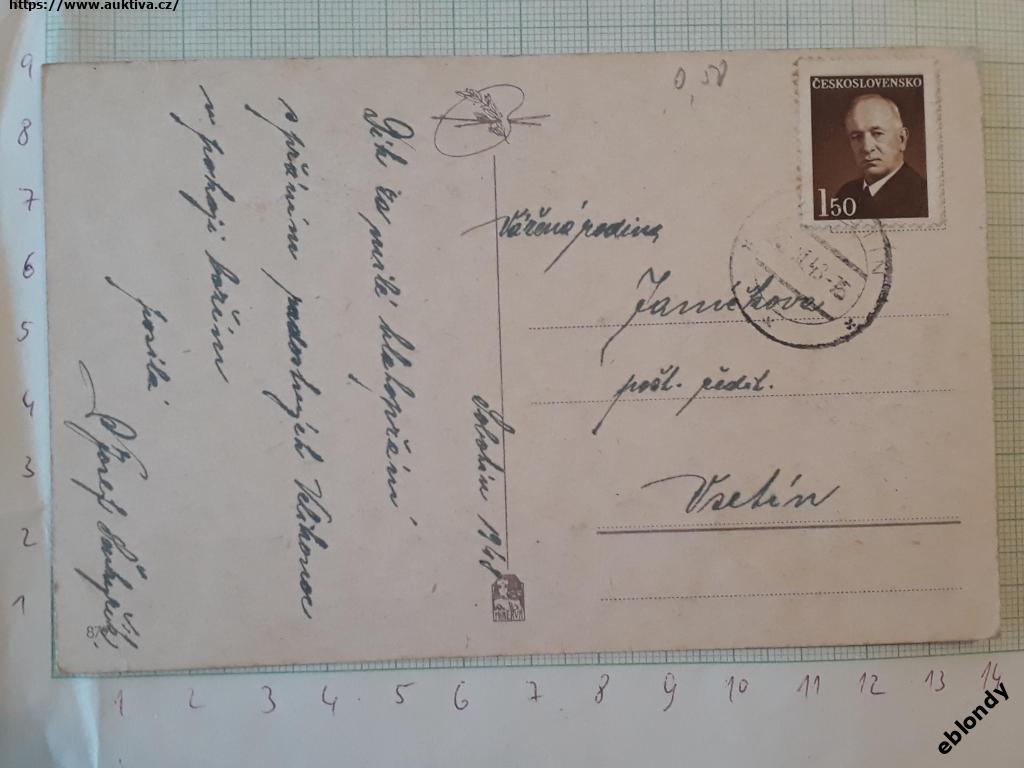 https://www.auktiva.cz/
0,50
ČESKOSLOVENSKO
1 50
Vážená rodina
Janíčkova
pošt. ředit.
Vsetín
Dík za milé blahopřání
s přáním radostných Velikonoc
v pokoji božím
posílá
Josef
1948
MINERVA
87
9
8
7
6
5
4
3
2
1
1 2 3 4 5 6 7 8 9 10 11 12 13 14
eblondy